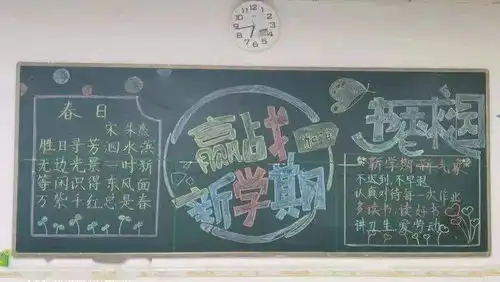 春日
宋 朱熹
胜日寻芳泗水滨
无边光景一时新
等闲识得东风面
万紫千红总是春
赢战
新学期
书香校园
新学期 新气象
不迟到 不早退
认真对待每一次作业
多读书,读好书
讲卫生,爱劳动